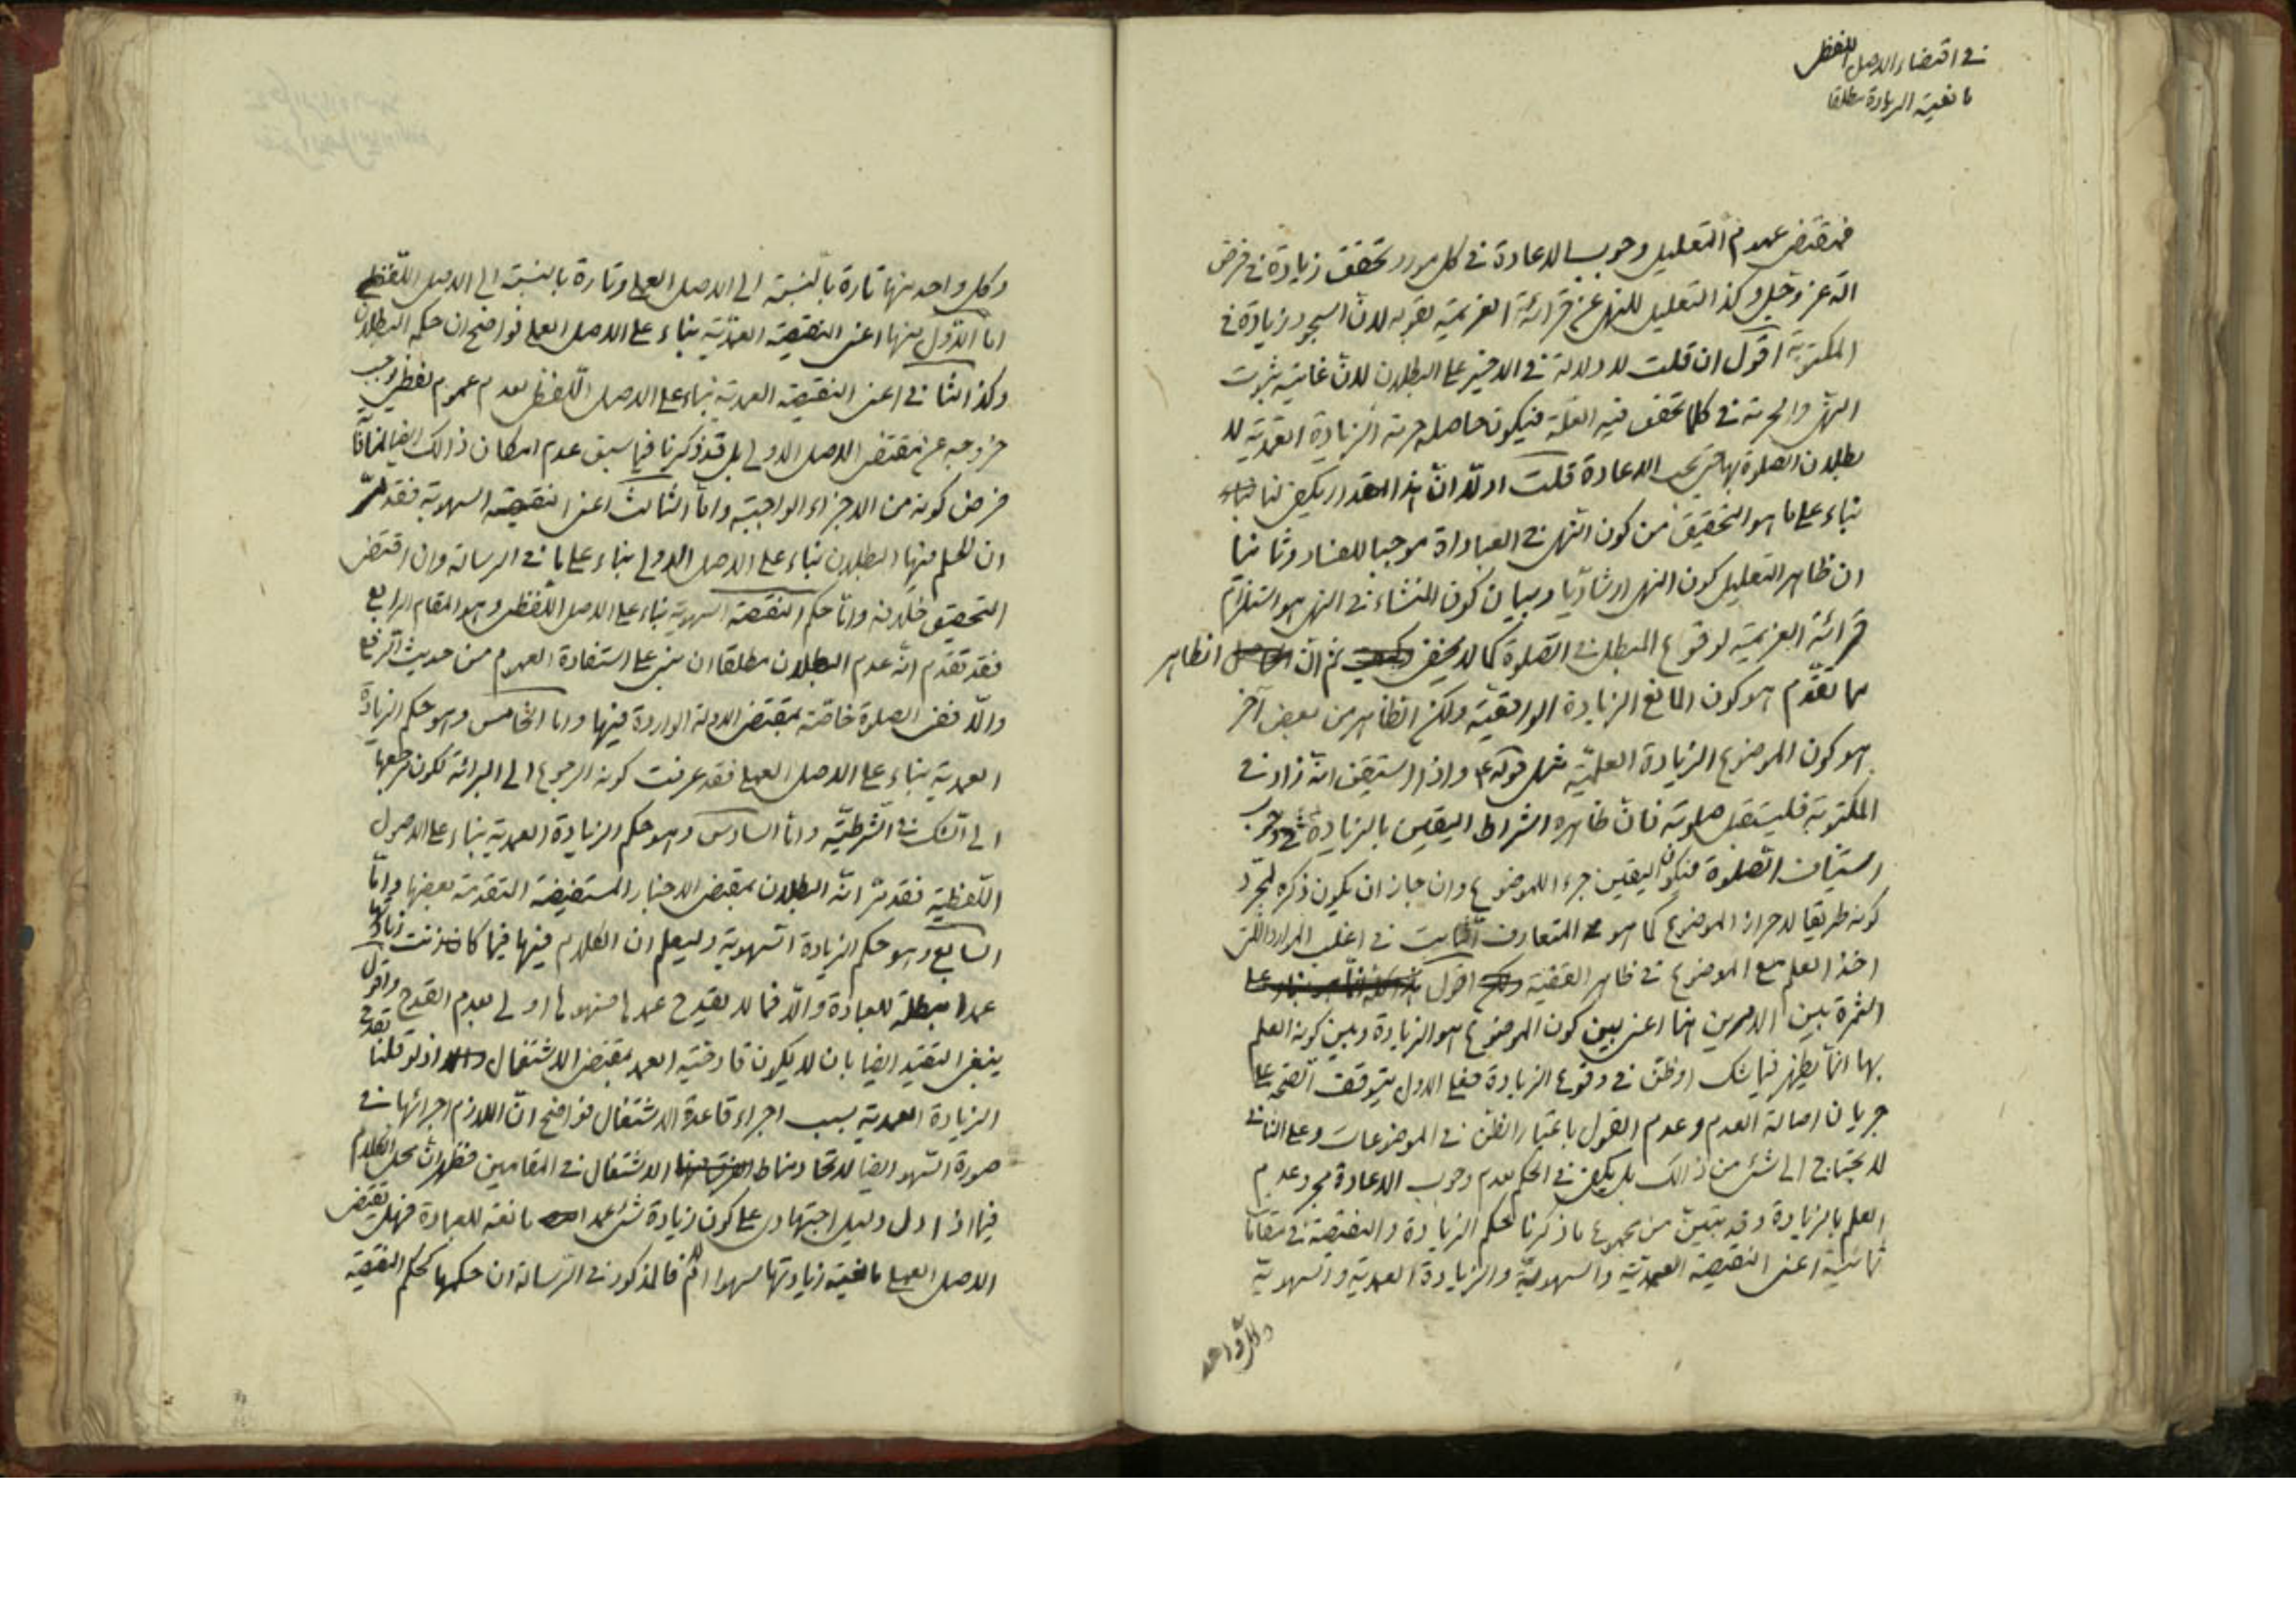 في اقتضاء الاصل اللفظي
مانعية الزيادة مطلقا
فمقتضى عموم التعليل وجوب الاعادة في كل مورد تحقق زيادة في فرض
الله عز وجل وكذا التعليل للنهي عن قرائة العزيمة بقوله لان السجود زيادة في
المكتوبة اقول ان قلت لا دلالة في الاخير على البطلان لان غايته ثبوت
النهي والحرمة في كلما تحقق فيه العلة فيكون حاصله حرمة الزيادة العمدية لا
بطلان الصلوة بها حتى يجب الاعادة قلت اولا ان هذا المقدار يكفى لنا
بناء على ما هو التحقيق من كون النهى في العباداة موجبا للفساد وثانيا
ان ظاهر التعليل كون النهى ارشاديا وبيان كون المنشاء في النهى هو استلزام
قرائة العزيمة لوقوع المبطل في الصلوة كما لا يخفى ثم ان الظاهر
مما تقدم هو كون المانع الزيادة الواقعية ولكن الظاهر من بعض آخر
هو كون الموضوع الزيادة العلمية مثل قوله ع واذا استيقن انه زاد في
المكتوبة فليستقبل صلوته فان ظاهره اشراط اليقين بالزيادة في وجوب
استيناف الصلوة فيكون اليقين جزء للموضوع وان جاز ان يكون ذكره لمجرد
كونه طريقا لاحراز الموضوع كما هو المتعارف الثابت في اغلب الموارد التي
اخذ العلم مع الموضوع في ظاهر القضية اقول
الثمرة بين الامرين انما اعنى بين كون الموضوع هو الزيادة وبين كونه العلم
بها انما يظهر فيما شك اوظن في وقوع الزيادة فعلى الاول يتوقف الصحة على
جريان اصالة العدم وعدم القول باعتبار الظن في الموضوعات وعلى الثاني
لا يحتاج الى شئ من ذالك بل يكفى في الحكم بعدم وجوب الاعادة مجرد عدم
العلم بالزيادة وقد تبين من مجموع ما ذكرنا حكم الزيادة والنقيصة في مقامات
ثمانية اعنى النقيصة العمدية والسهوية والزيادة العمدية والسهوية
وكل واحد
وكل واحد منها تارة بالنسبة الى الاصل العملى وتارة بالنسبة الى الاصل اللفظى
اما الاول منها اعنى النقيصة العمدية بناء على الاصل العملى فواضح ان حكمه البطلان
وكذا الثاني اعنى النقيصة العمدية بناء على الاصل اللفظى لعدم عموم لفظى يوجب
خروجه عن مقتضى الاصل الاولى بل قد ذكرنا فيما سبق عدم امكان ذالك ايضا لمنافاة
فرض كونه من الاجزاء الواجبة واما الثالث اعنى النقيصة السهوية فقد مر
ان الحكم فيها البطلان بناء على الاصل الاولى بناء على ما في الرسالة وان اقتضى
التحقيق خلافه واما حكم النقيصة السهوية بناء على الاصل اللفظى وهو المقام الرابع
فقد تقدم انه عدم البطلان مطلقا ان بنى على استفادة العموم من حديث الرفع
والا ففى الصلوة خاصة بمقتضى الادلة الواردة فيها واما الخامس وهو حكم الزيادة
العمدية بناء على الاصل العملى فقد عرفت كونه الرجوع الى البرائة لكون مرجعها
الى الشك في الشرطية واما السادس وهو حكم الزيادة العمدية بناء على الاصول
اللفظية فقد مر انه البطلان بمقتضى الاخبار المستفيضة المتقدمة بعضها واما
السابع وهو حكم الزيادة السهوية وليعلم ان الكلام فيها فيما كانت زيادتها
عمدا مبطلة للعبادة والا فما لا يقدح عمدها فسهوها اولى بعدم القدح واقول
ينبغى التقييد ايضا بان لا يكون قادحية العمد بمقتضى الاشتغال اذ لو قلنا بقدح
الزيادة العمدية بسبب اجراء قاعدة الاشتغال فواضح ان اللازم اجرائها في
صورة السهو ايضا لاتحاد مناط الاشتغال في المقامين فظهر ان محل الكلام
فيما اذا دل دليل اجتهادى على كون زيادة شئ عمدا مانعة للعبادة فهل يقتضى
الاصل العملى مانعية زيادتها سهوا ام لا فالمذكور في الرسالة ان حكمها كحكم النقيصة